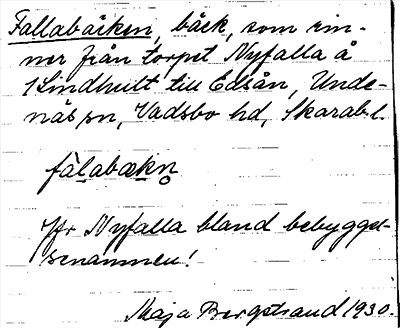 Fallabäcken, bäck, som rin-
ner från torpet Nyfalla å
1 Lindhult till Edsån, Unde-
näs sn, Vadsbo hd, Skarab. l.
fàlabækn̥
Jfr Nyfalla bland bebyggel-
senamnen!
Maja Bergstrand 1930.